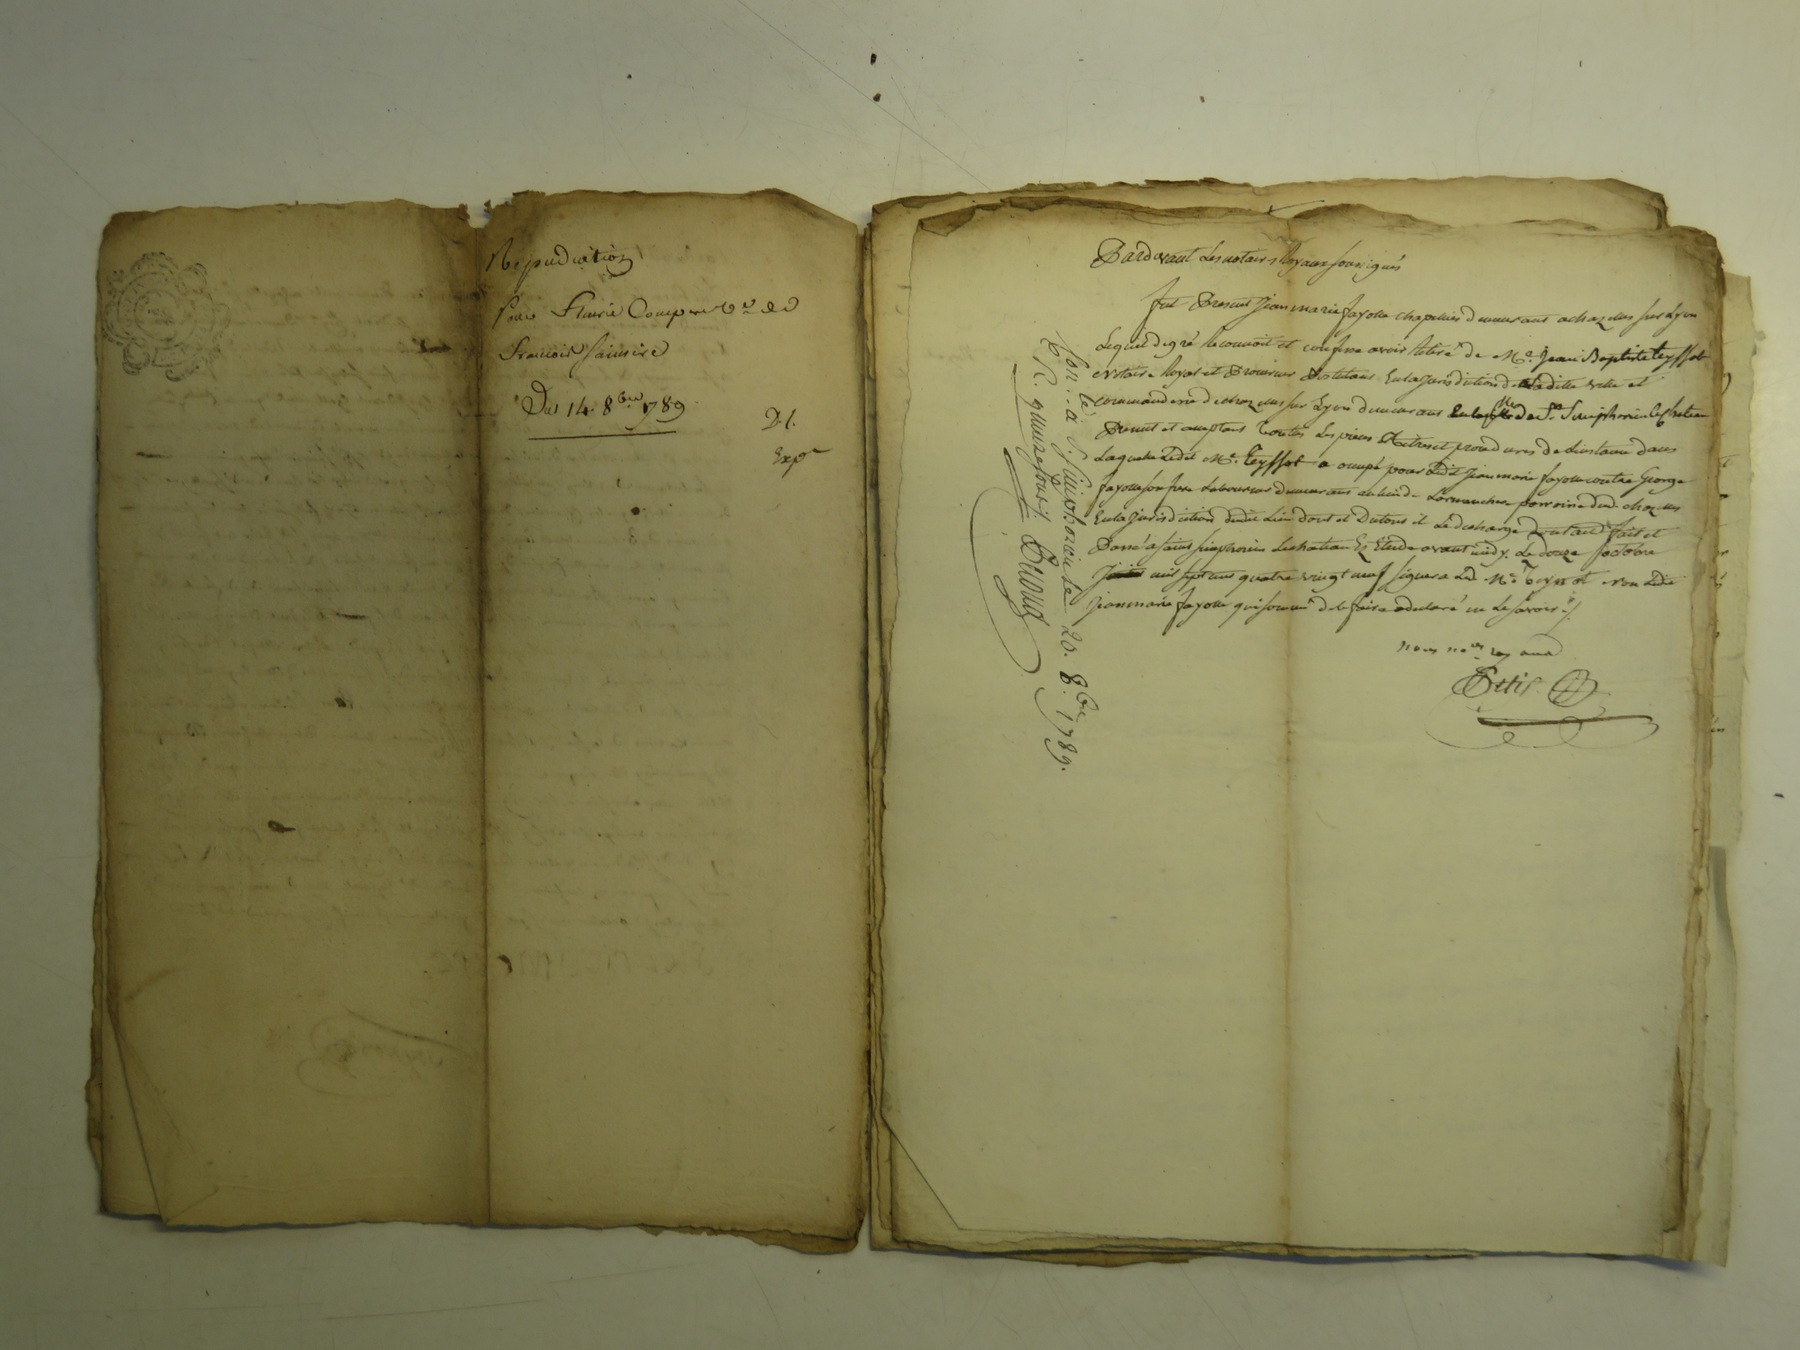 Repudiation
pour Fleurie Compere v.e de
Francois Saimire
Du 14 8bre 1789
D. f.
Exp.
Pardevant Les notaires Royaux soussignés
fut Present Jean marie fayolle chapellier demeurant a chazelles sur Lyon
Lequel de gré Reconnoit et confesse avoir Retiré de Me. Jean Baptiste teyssot
Notaire Royal et Procureur Postulant En la Jurisdiction de Ladite ville et
commanderie de chazelles sur Lyon demeurant En la ville de St. Simphorien le Chateau
Present et acceptant Toutes Les pieces Actes et procedures de L'instance dans
Laquelle Ledit Me. teyssot a occupé pour Ledit Jean marie fayolle contre George
fayolle son frere Laboureur demeurant au lieu de paroisse dud. chazelles
En la Jurisdiction dudit Lieu dont et Dutout il Le decharge fait et
Passé a saint simphorien Le chateau Ez Etude avant midy Le douze octobre
mil sept cent quatre vingt neuf signera Led. Me. Teyssot non Ledit
Jean marie fayolle qui somme de le faire a declaré ne Le savoir ./.
nous no.res royaux
Con.lé à S. Simphorien le 20. 8bre 1789.
R. quinze sous